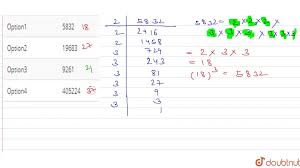 Option1 5832 18
Option2 19683 27
Option3 9261 21
Option4 405224
2 5832
2 2916
2 1458
3 729
3 243
3 81
3 27
3 9
3 3
1
5832 = 2×2×2×
3×3×3×3×3×3
= 2×3×3
= 18
(18)³ = 5832
doubtnut